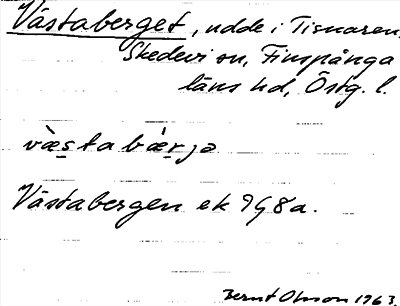 Västaberget, udde i Tisnaren,
Skedevi sn, Finspånga
läns hd, Östg. l.
væ̀stabær̀jə
Västabergen ek 9G8a.
Bernt Olsson 1963.